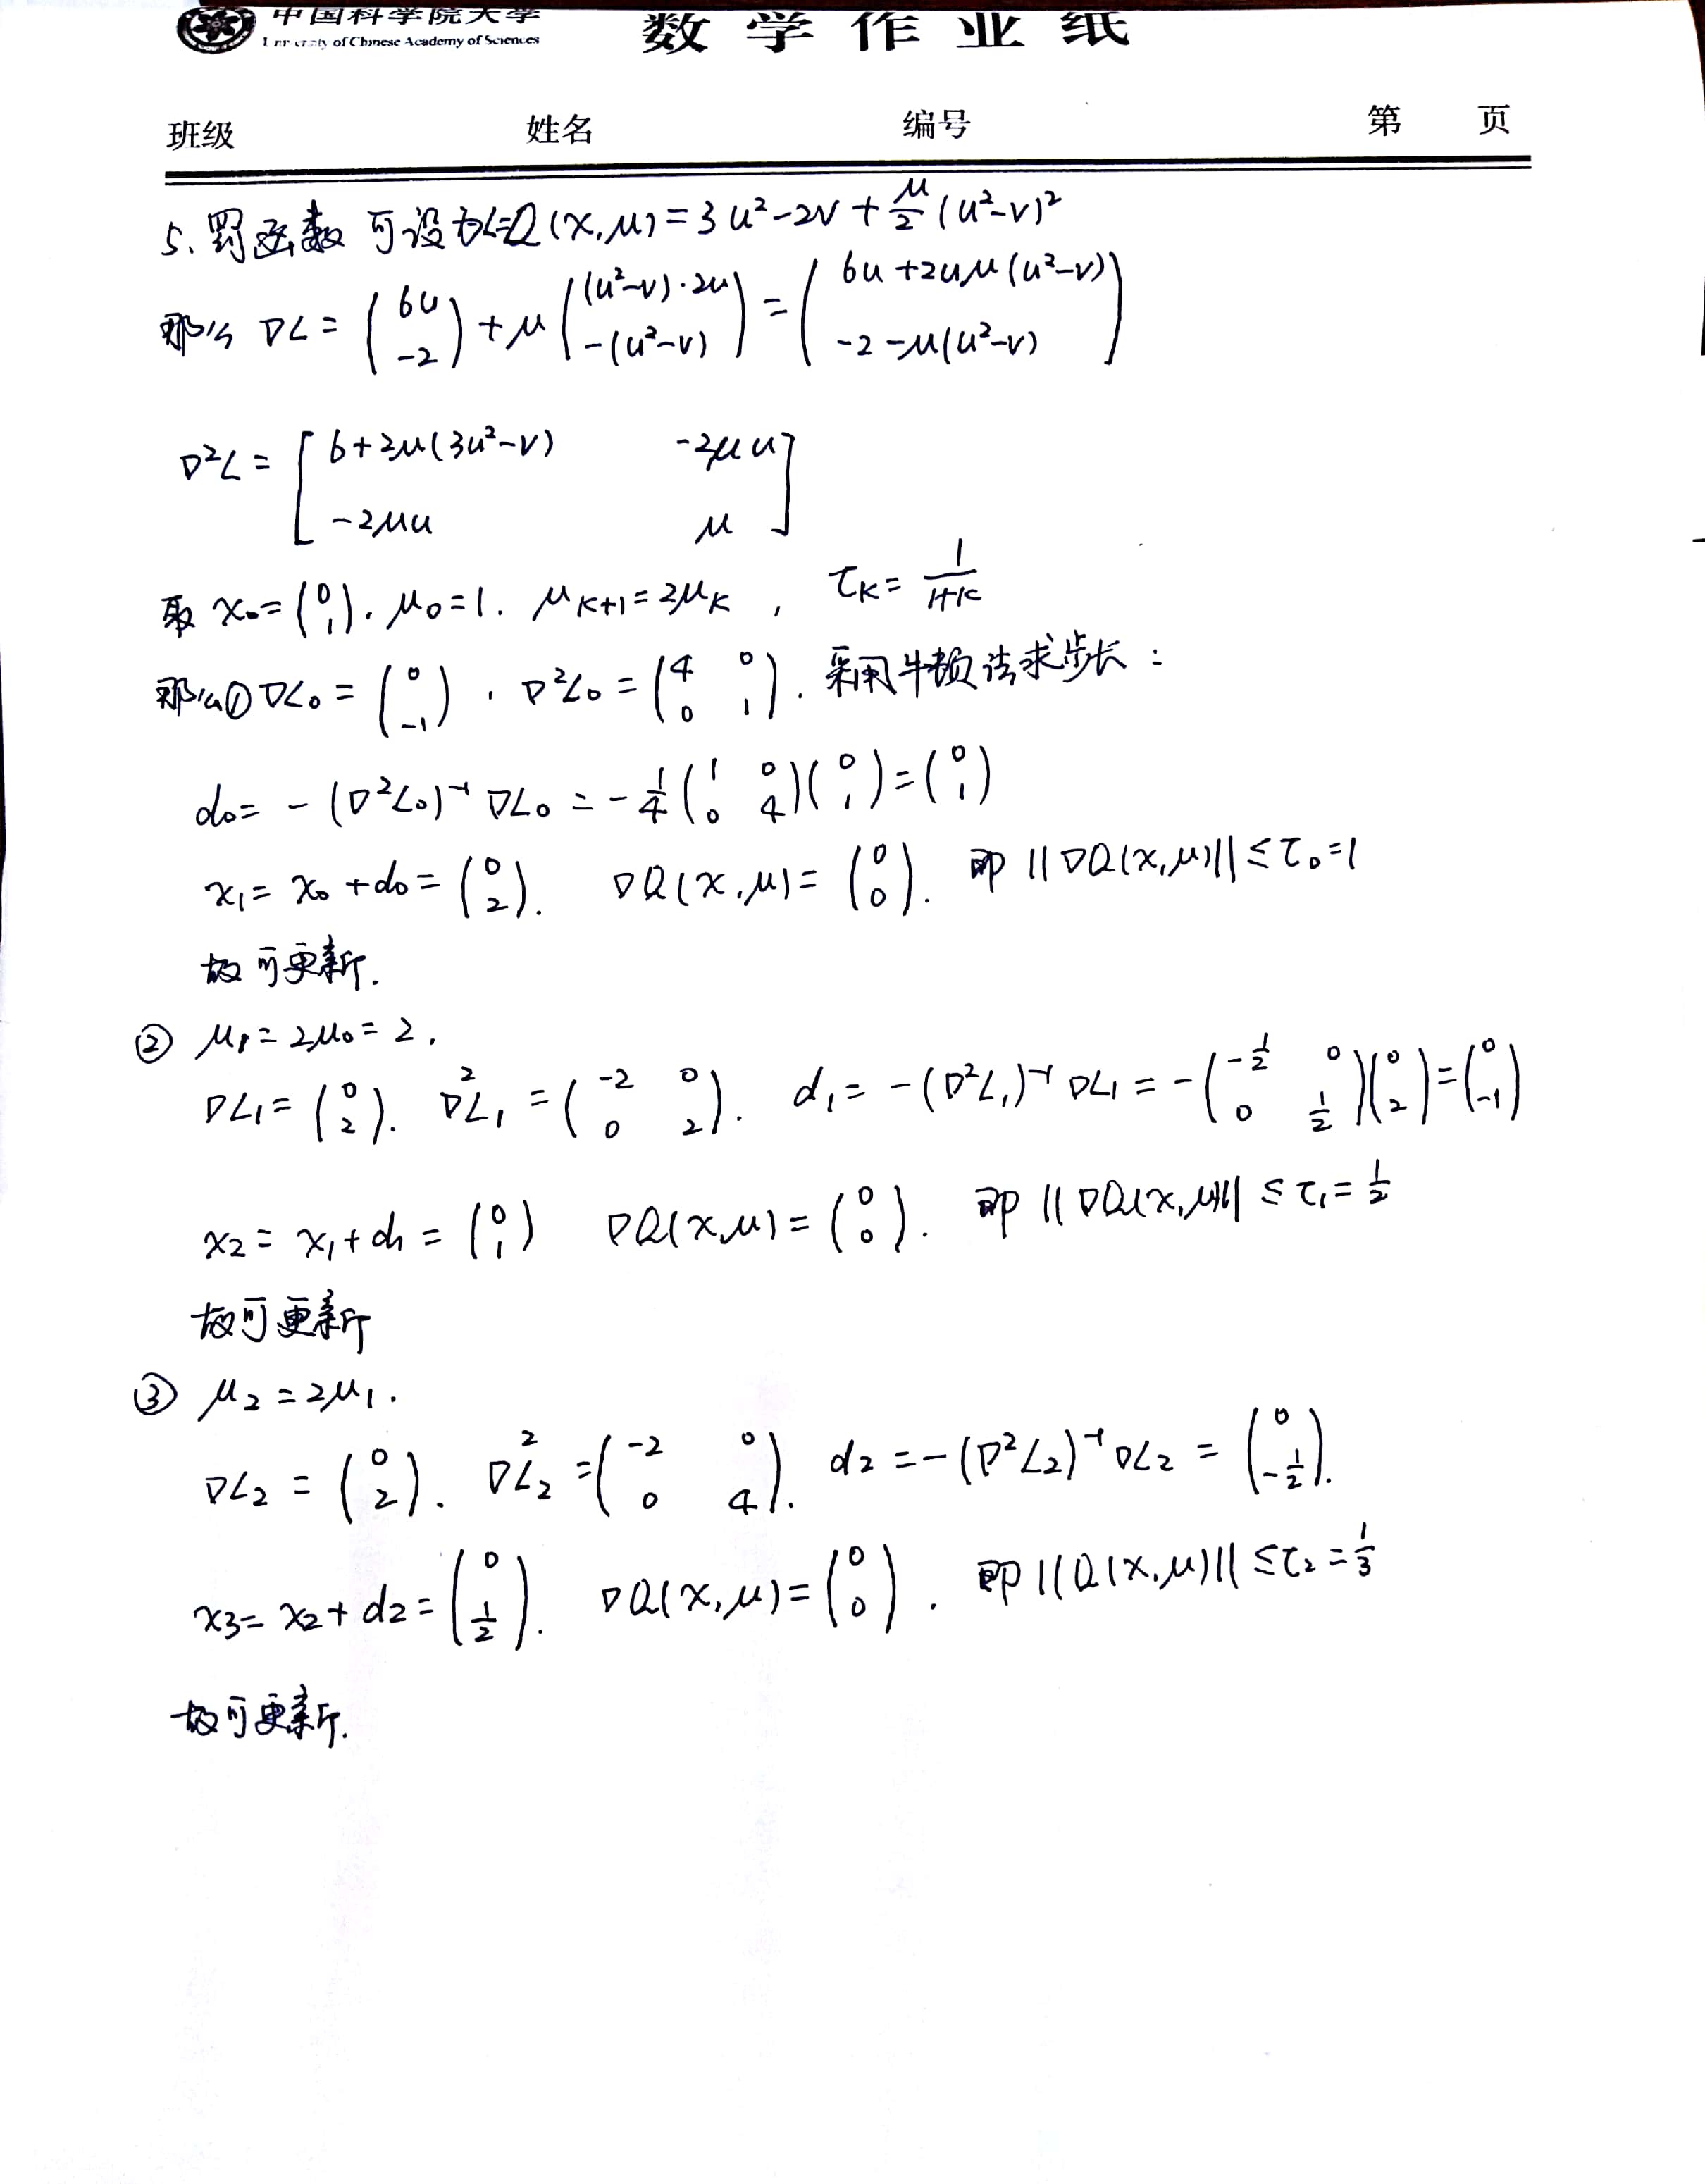 中国科学院大学
of Chinese Academy of Sciences
数学作业纸
班级 姓名 编号 第 页
5、罚函数可设为L=Q(x,μ)=3u²-2v+\frac{μ}{2}(u²-v)²
那么 ∇L=\begin{pmatrix}6u\\-2\end{pmatrix}+μ\begin{pmatrix}(u²-v)·2u\\-(u²-v)\end{pmatrix}=\begin{pmatrix}6u+2uμ(u²-v)\\-2-μ(u²-v)\end{pmatrix}
∇²L=\begin{bmatrix}6+2μ(3u²-v)&-2μu\\-2μu&μ\end{bmatrix}
取 x₀=\begin{pmatrix}0\\1\end{pmatrix}. μ₀=1. μ_{k+1}=2μ_k, τ_k=\frac{1}{1+k}
那么① ∇L₀=\begin{pmatrix}0\\-1\end{pmatrix}, ∇²L₀=\begin{pmatrix}4&0\\0&1\end{pmatrix}. 采用牛顿法求步长:
d₀=-(∇²L₀)⁻¹∇L₀=-\frac{1}{4}\begin{pmatrix}1&0\\0&4\end{pmatrix}\begin{pmatrix}0\\1\end{pmatrix}=\begin{pmatrix}0\\1\end{pmatrix}
x₁=x₀+d₀=\begin{pmatrix}0\\2\end{pmatrix}. ∇Q(x,μ)=\begin{pmatrix}0\\0\end{pmatrix}. 即||∇Q(x,μ)||≤τ₀=1
故可更新.
② μ₁=2μ₀=2.
∇L₁=\begin{pmatrix}0\\2\end{pmatrix}. ∇²L₁=\begin{pmatrix}-2&0\\0&2\end{pmatrix}. d₁=-(∇²L₁)⁻¹∇L₁=-\begin{pmatrix}-\frac{1}{2}&0\\0&\frac{1}{2}\end{pmatrix}\begin{pmatrix}0\\2\end{pmatrix}=\begin{pmatrix}0\\-1\end{pmatrix}
x₂=x₁+d₁=\begin{pmatrix}0\\1\end{pmatrix} ∇Q(x,μ)=\begin{pmatrix}0\\0\end{pmatrix}. 即||∇Q(x,μ)||≤τ₁=\frac{1}{2}
故可更新
③ μ₂=2μ₁.
∇L₂=\begin{pmatrix}0\\2\end{pmatrix}. ∇²L₂=\begin{pmatrix}-2&0\\0&4\end{pmatrix}. d₂=-(∇²L₂)⁻¹∇L₂=\begin{pmatrix}0\\-\frac{1}{2}\end{pmatrix}.
x₃=x₂+d₂=\begin{pmatrix}0\\\frac{1}{2}\end{pmatrix}. ∇Q(x,μ)=\begin{pmatrix}0\\0\end{pmatrix}. 即||Q(x,μ)||≤τ₂=\frac{1}{3}
故可更新.